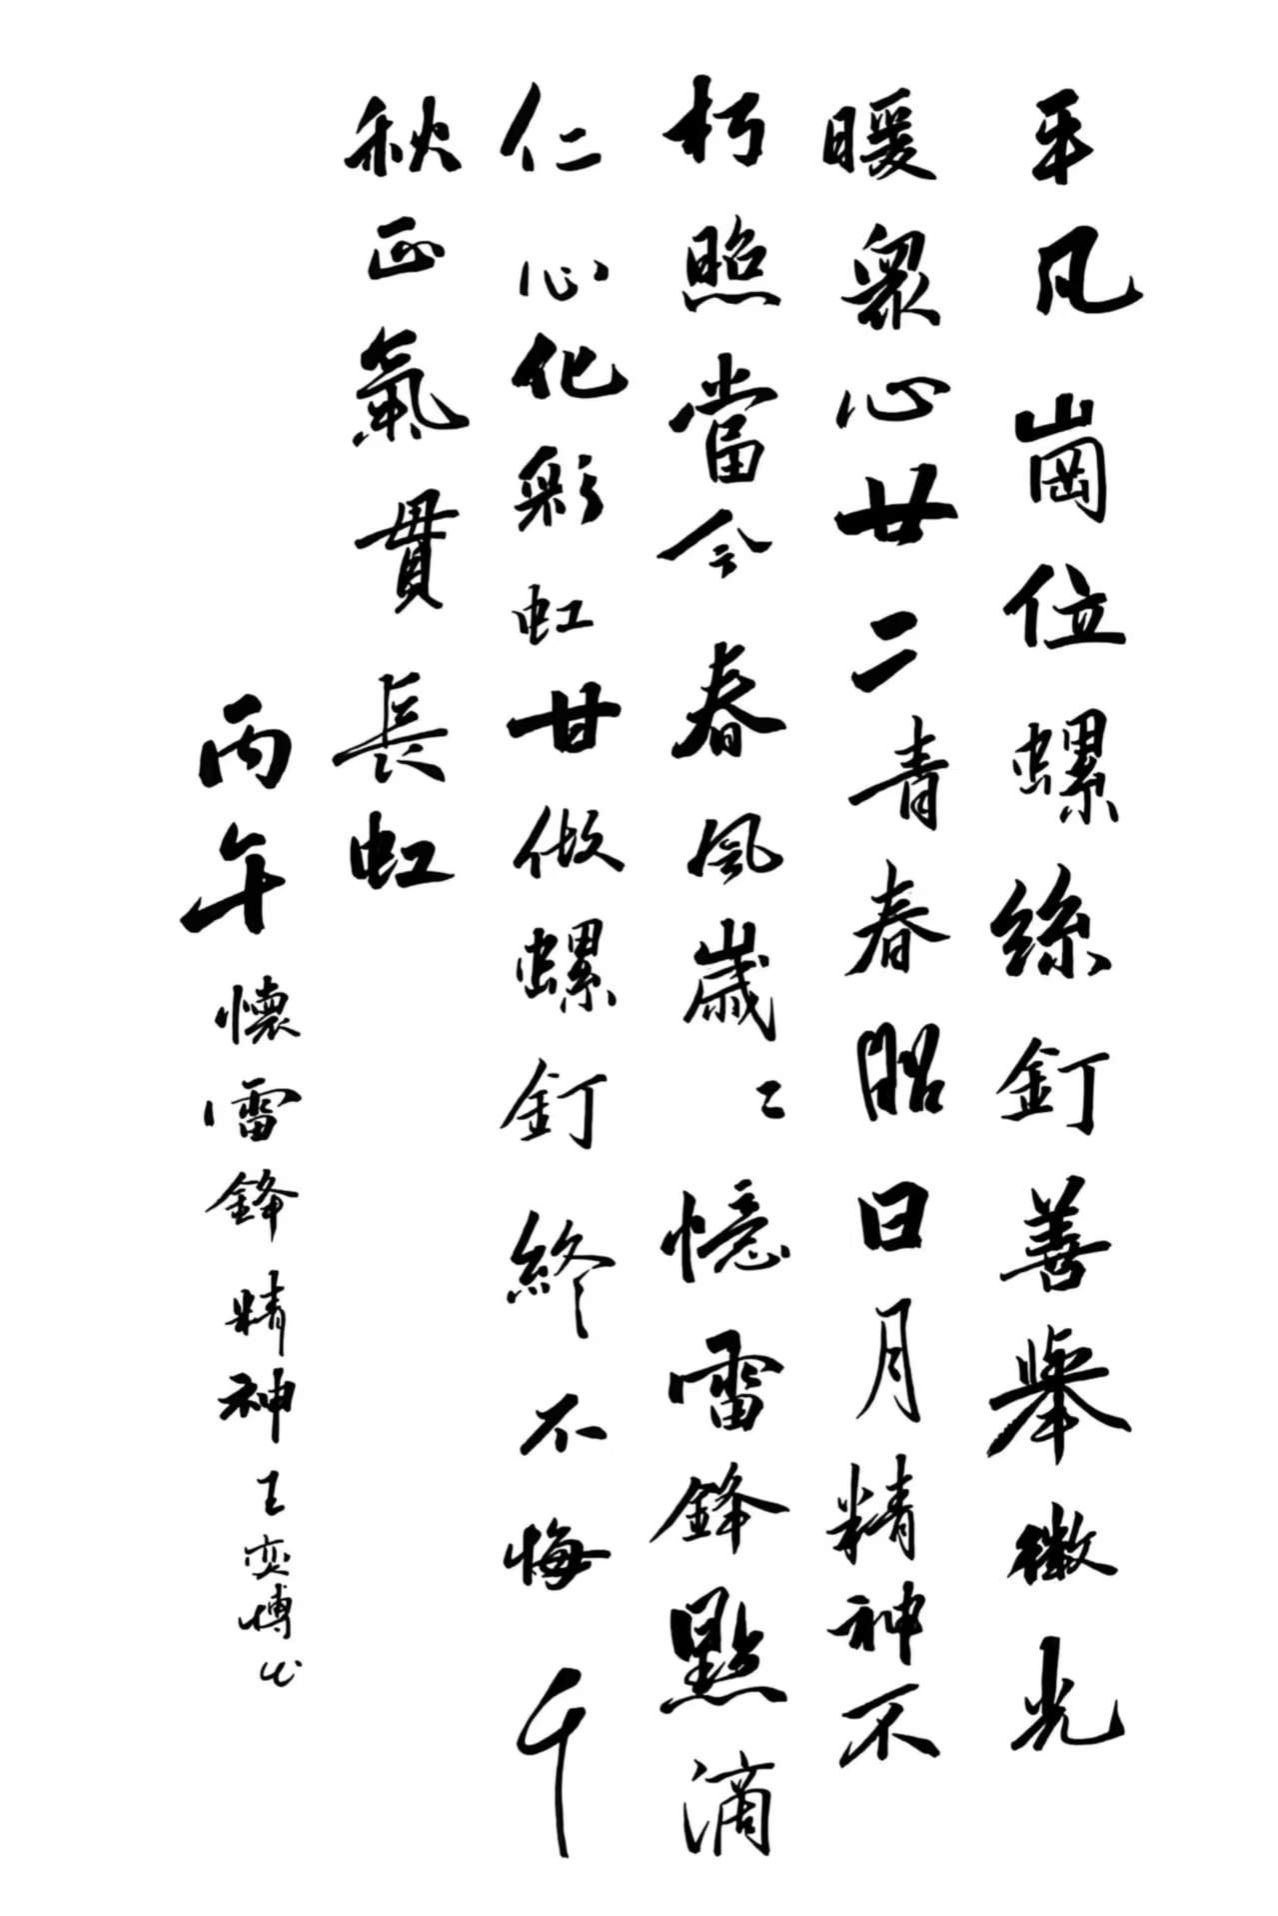 平凡崗位螺絲釘善舉微光
暖眾心廿二青春昭日月精神不
朽照當今春風歲〻憶雷鋒點滴
仁心化彩虹甘做螺釘終不悔千
秋正氣貫長虹
丙午懷雷鋒精神王奕博书